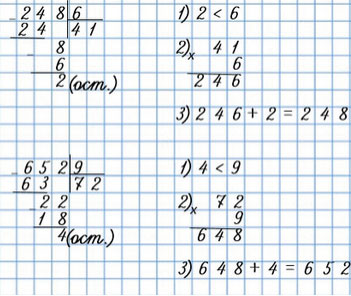 248|6
24 |41
8
6
2(ост.)
1) 2 < 6
2)× 41
6
246
3) 246 + 2 = 248
652|9
63 |72
22
18
4(ост.)
1) 4 < 9
2)× 72
9
648
3) 648 + 4 = 652